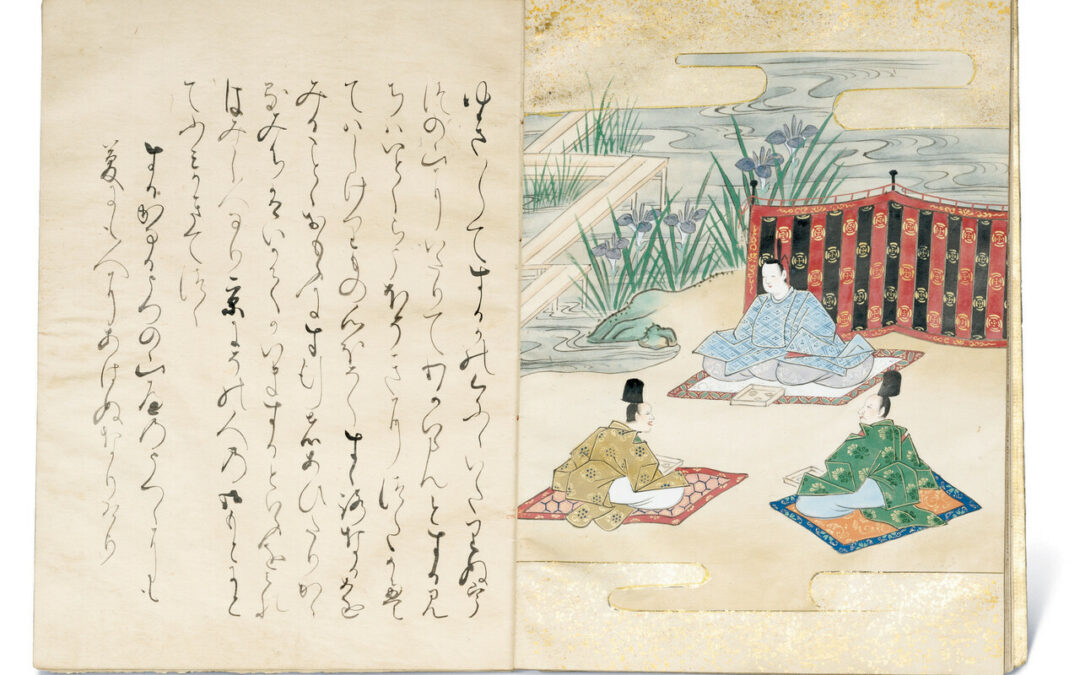 ゆき〳〵てするかのくにゝいたりぬう
つの山にいたりてわかいらんとするみ
ちはいとくらうほそきにつたかえ
てはしけりもの心ほそくすゝろなるめを
みることゝおもふにあひたりかゝ
るみちはいかてかいまするといふをみれ
はみし人なり京にその人の御もとにと
てふみかきてつく
するかなるうつの山辺のうつゝにも
夢にも人にあはぬなりけり